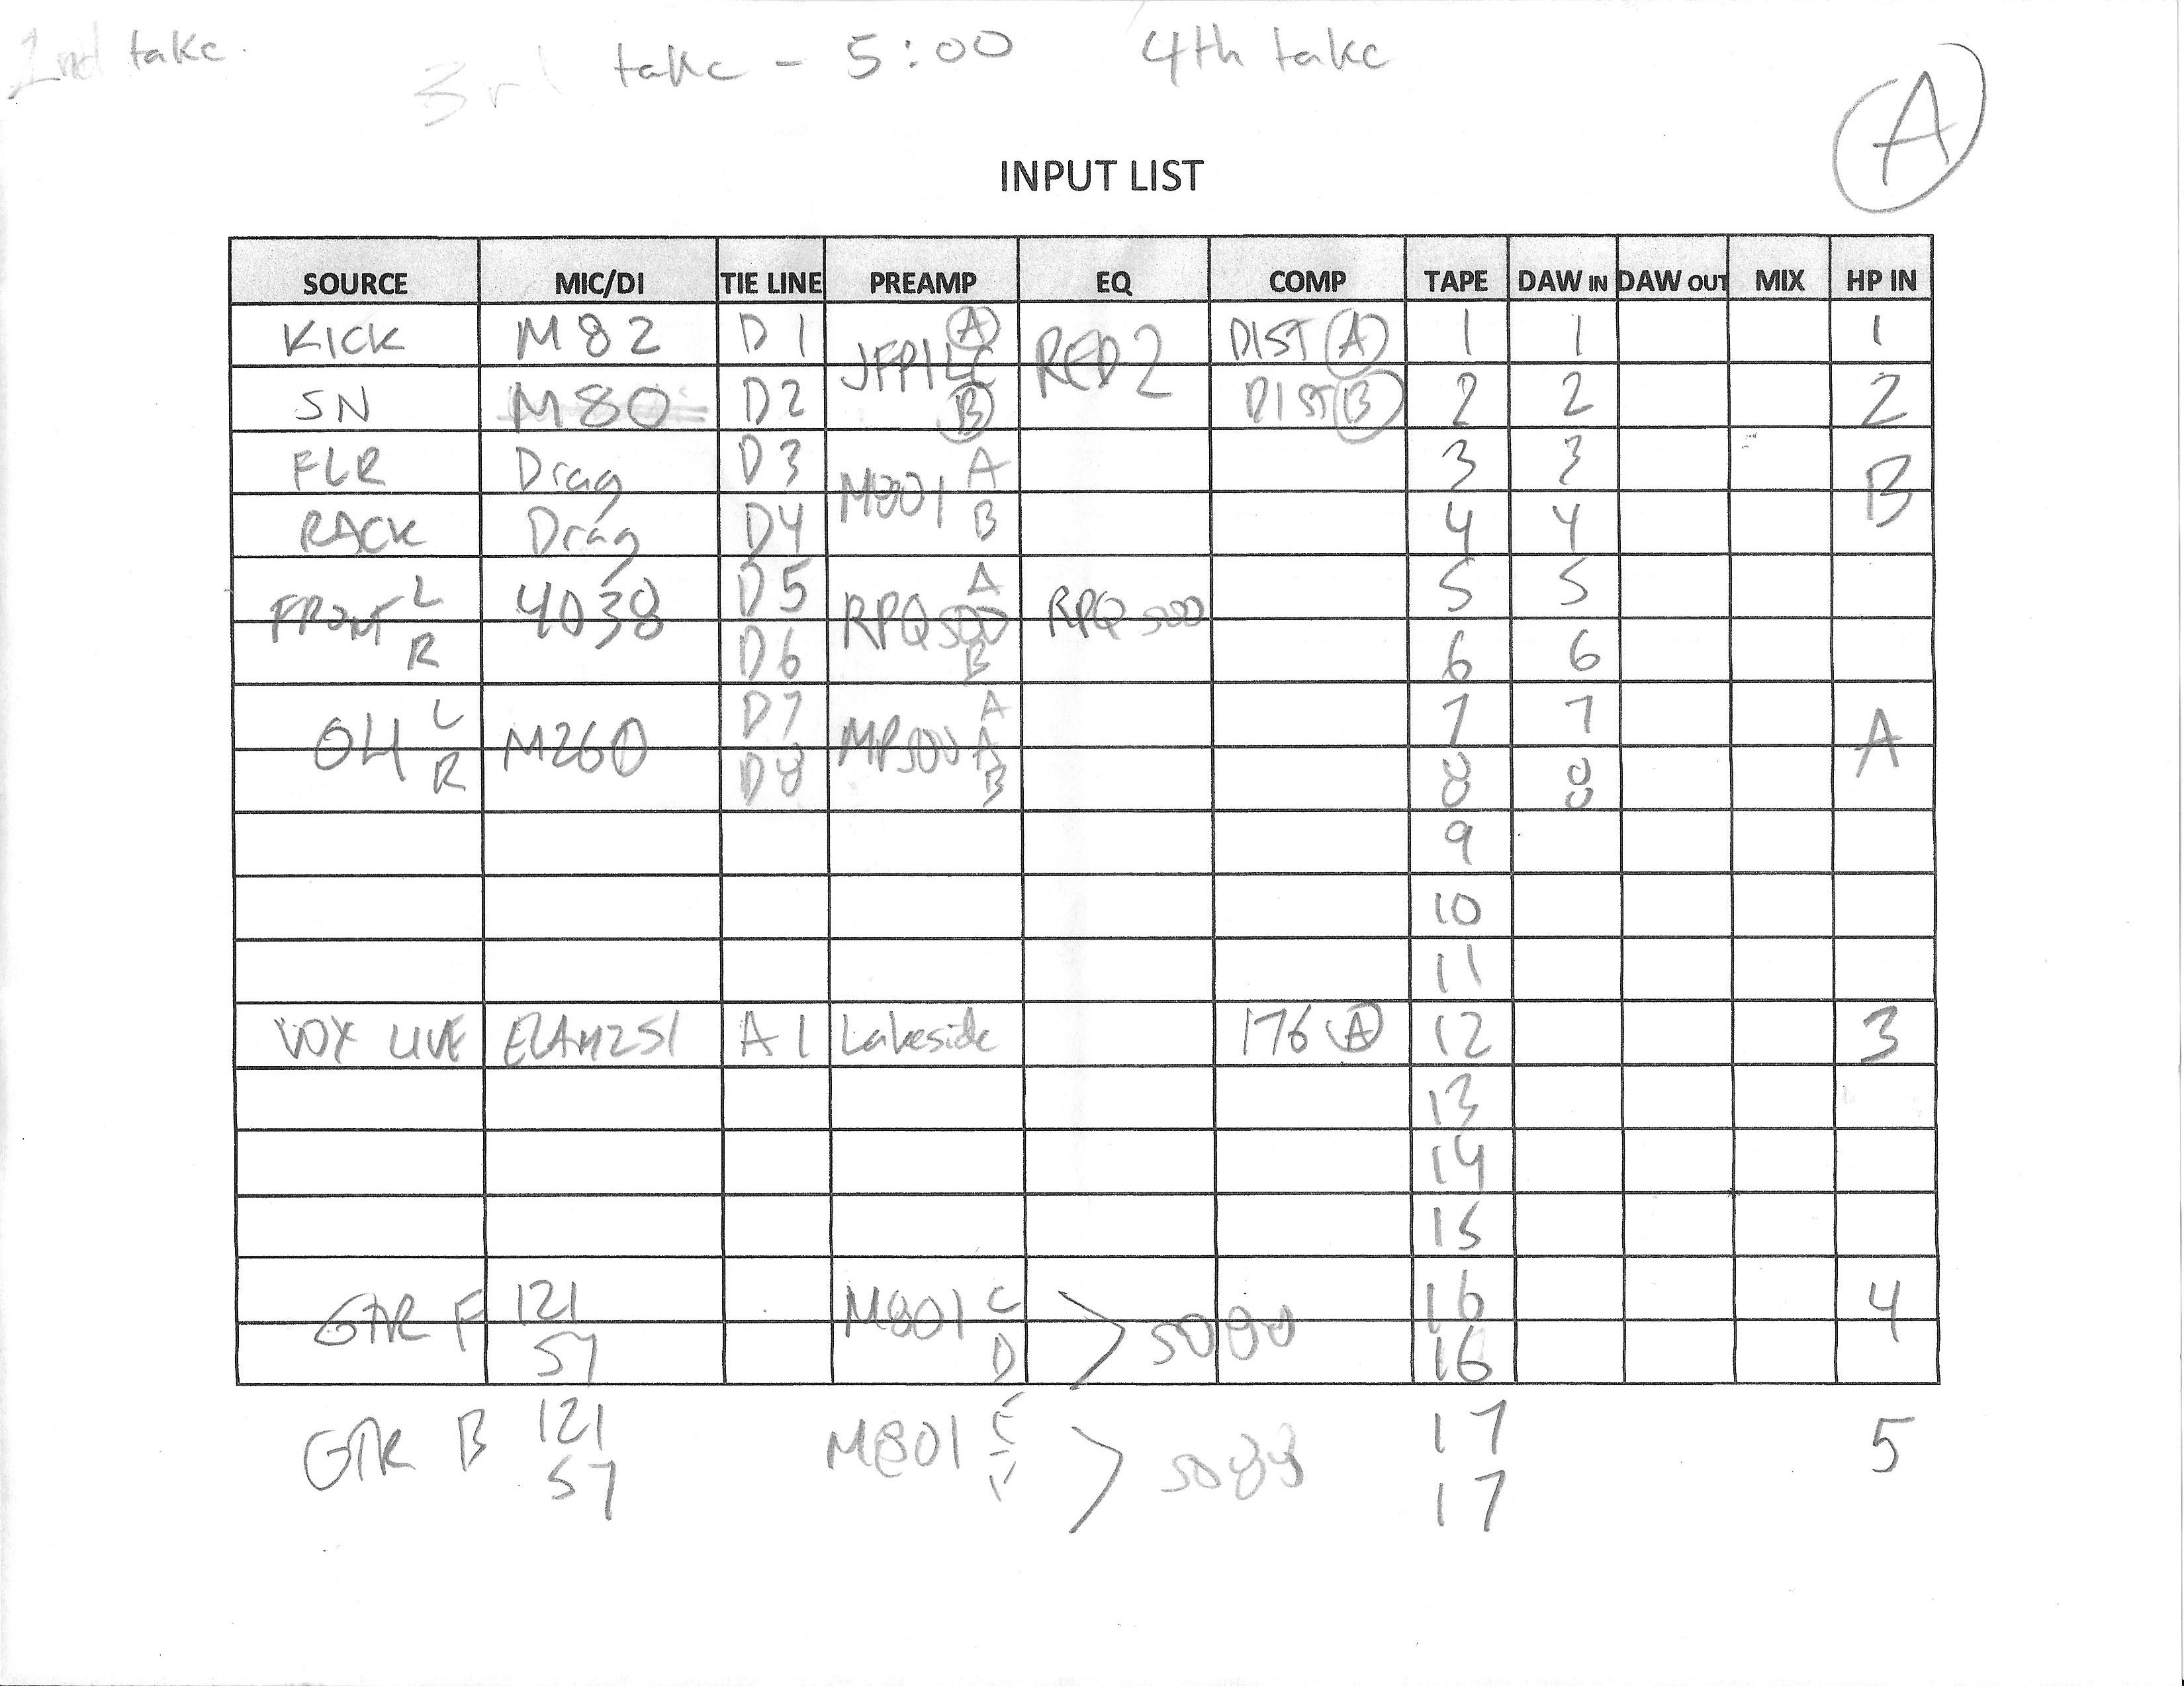 2nd take.
3rd take - 5:00 4th take
A
INPUT LIST
SOURCE MIC/DI TIE LINE PREAMP EQ COMP TAPE DAW IN DAW OUT MIX HP IN
KICK M82 D1 JFP1LC A RED2 DIST A 1 1 1
SN M80 D2 B DIST B 2 2 2
FLR Drag D3 M801 A 3 3 B
RACK Drag D4 B 4 4
FRONT L 4038 D5 RPQ500 A RPQ500 5 5
R D6 B 6 6
OH L M260 D7 MP500 A 7 7 A
R D8 A B 8 8
9
10
11
VOX LIVE ELAM251 A1 Lakeside 176 A 12 3
13
14
15
GTR F 121 M801 C > 16 4
57 D 16
GTR B 121 M801 > 17 5
57 17